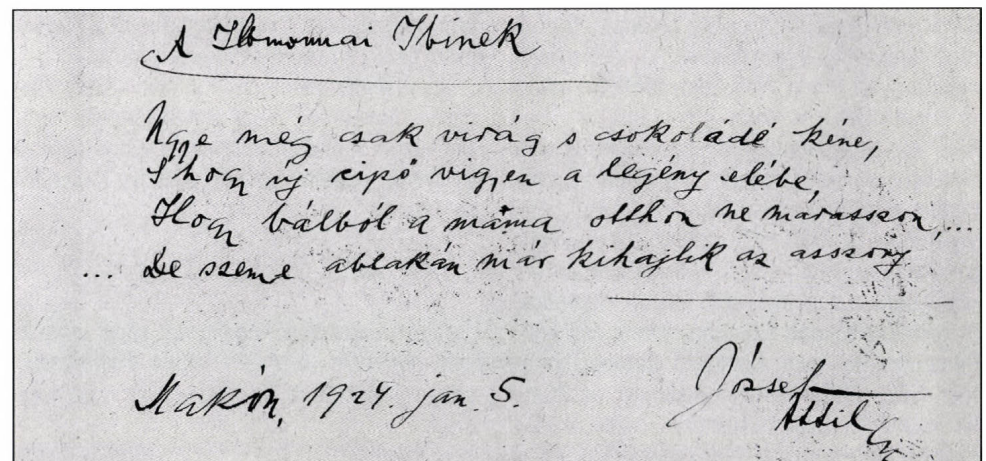 A Homonnai Ibinek
Ugye még csak virág s csokoládé kéne,
S hogy új cipő vigyen a legény elébe,
Hogy bálból a máma otthon ne marasszon,...
... De szeme ablakán már kihajlik az asszony
Makón, 1924. jan. 5.
József
Attila